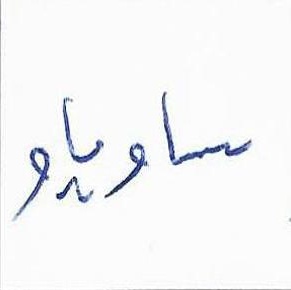 ساوپاو